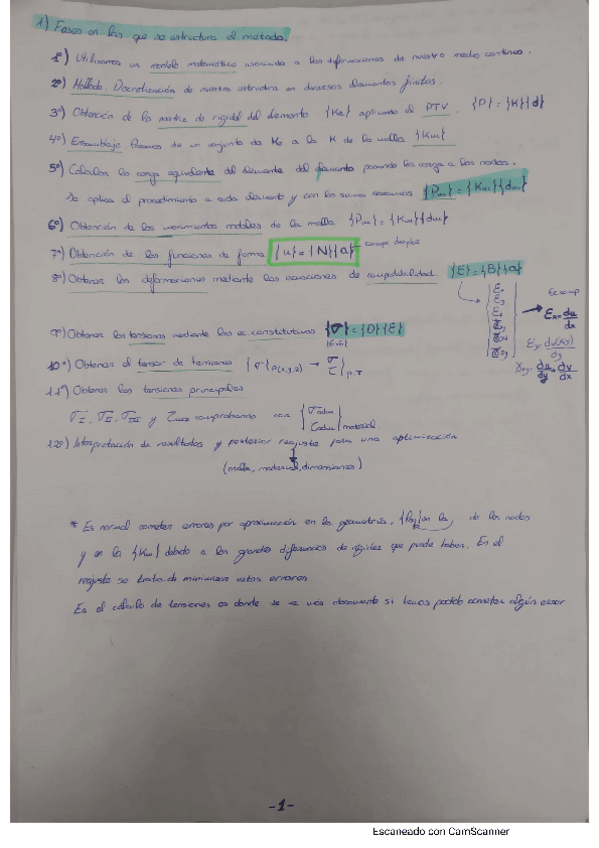 1) Fases en las que se estructura el método.
1º) Utilizamos un modelo matemático asociado a las deformaciones de nuestro medio continuo.
2º) Mallado. Discretización de nuestra estructura en diversos elementos finitos.
3º) Obtención de la matriz de rigidez del elemento {Ke} aplicando el PTV. {P} = {K}{d}
4º) Ensamblaje. Pasamos de un conjunto de Ke a la K de la malla {Km}
5º) Calculos la carga equivalente del elemento pasando la carga a los nodos.
Se aplica el procedimiento a cada elemento y con la suma {Pm} = {Km}{dm}
6º) Obtención de los movimientos nodales de la malla {Pm} = {Km}{dm}
7º) Obtención de las funciones de forma {u} = {N}{a} campo desplz
8º) Obtener las deformaciones mediante las ecuaciones de compatibilidad. {E} = {B}{a}
Ex = du/dx
9º) Obtener las tensiones mediante las ec. constitutivas {σ} = {D}{E}
(6x6)
10º) Obtener el tensor de tensiones {σ}P(x,y,z) → σ τ } P.T
11º) Obtener las tensiones principales
σI, σII, σIII y τmax comprobando con { σadm τadm } material
12º) Interpretación de resultados y posterior reajuste para una optimización
(malla, material, dimensiones)
* Es normal cometer errores por aproximación en la geometría, en la de los nodos
y en la {Km} debido a las grandes diferencias de rigidez que puede haber. En el
reajuste se trata de minimizar estos errores.
En el cálculo de tensiones es donde se ve más claramente si hemos podido cometer algún error
-1-
Escaneado con CamScanner